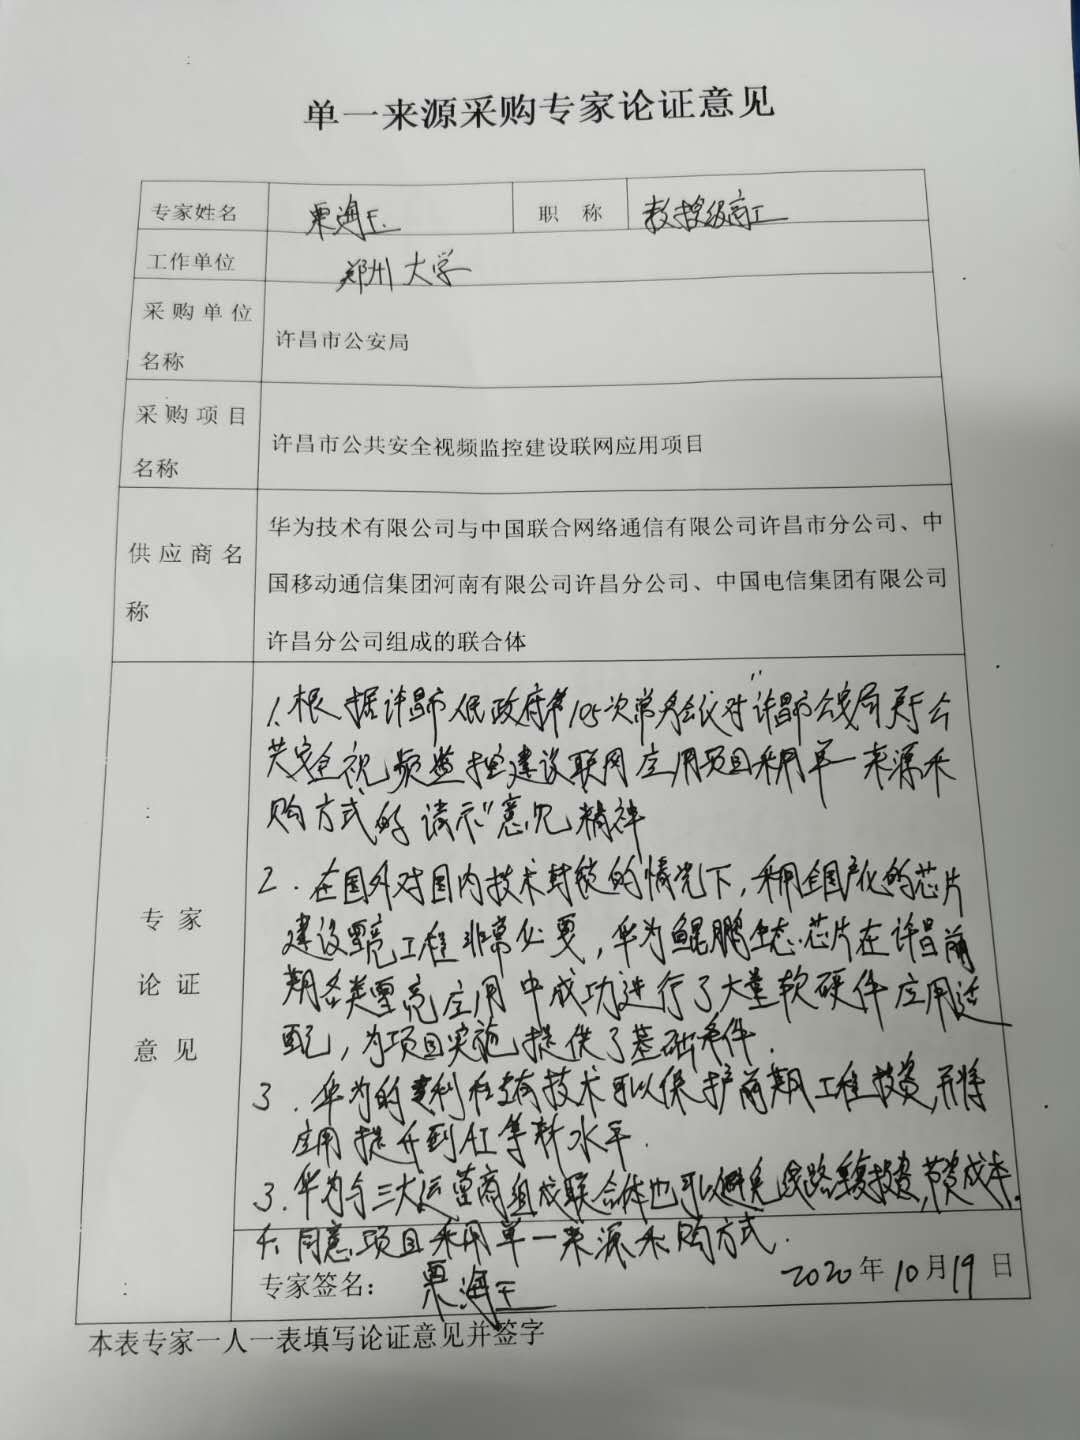 单一来源采购专家论证意见
专家姓名 栗海玉 职 称 教授级高工
工作单位 郑州大学
采购单位名称 许昌市公安局
采购项目名称 许昌市公共安全视频监控建设联网应用项目
供应商名称
华为技术有限公司与中国联合网络通信有限公司许昌市分公司、中
国移动通信集团河南有限公司许昌分公司、中国电信集团有限公司
许昌分公司组成的联合体
专家论证意见
1、根据许昌市人民政府第105次常务会议对"许昌市公安局关于公
共安全视频监控建设联网应用项目采用单一来源采
购方式的请示"意见精神
2.在国外对国内技术封锁的情况下,采用全国产化的芯片
建设雪亮工程非常必要,华为鲲鹏生态芯片在许昌前
期各类雪亮应用中成功进行了大量软硬件应用适
配,为项目实施提供了基础条件.
3.华为的专利和专有技术可以保护前期工程投资,并将
应用提升到AI等新水平.
3.华为与三大运营商组成联合体也可以避免线路重复投资,节资成本.
4.同意项目采用单一来源采购方式.
专家签名: 栗海玉 2020年10月19日
本表专家一人一表填写论证意见并签字